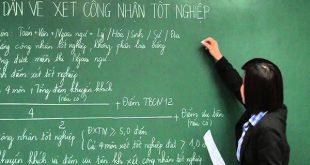 DẪN VỀ XÉT CÔNG NHẬN TỐT NGHIỆP
Toán + Văn + Ngoại ngữ + Lý / Hóa / Sinh / Sử / Địa
công nhận tốt nghiệp, không phải
được miễn thi Ngoại ngữ
điểm xét tốt nghiệp
4 môn + Tổng điểm khuyến khích
(nếu có)
+ Điểm TBCM 12
4
+ Điểm ưu tiên
(nếu có)
2
công nhận tốt nghiệp
ĐXTN ≥ 5,0 điểm
Cả 4 môn xét tốt nghiệp đạt > 1,0
khuyến khích và điểm ưu tiên khi xét công nhận tốt nghiệp